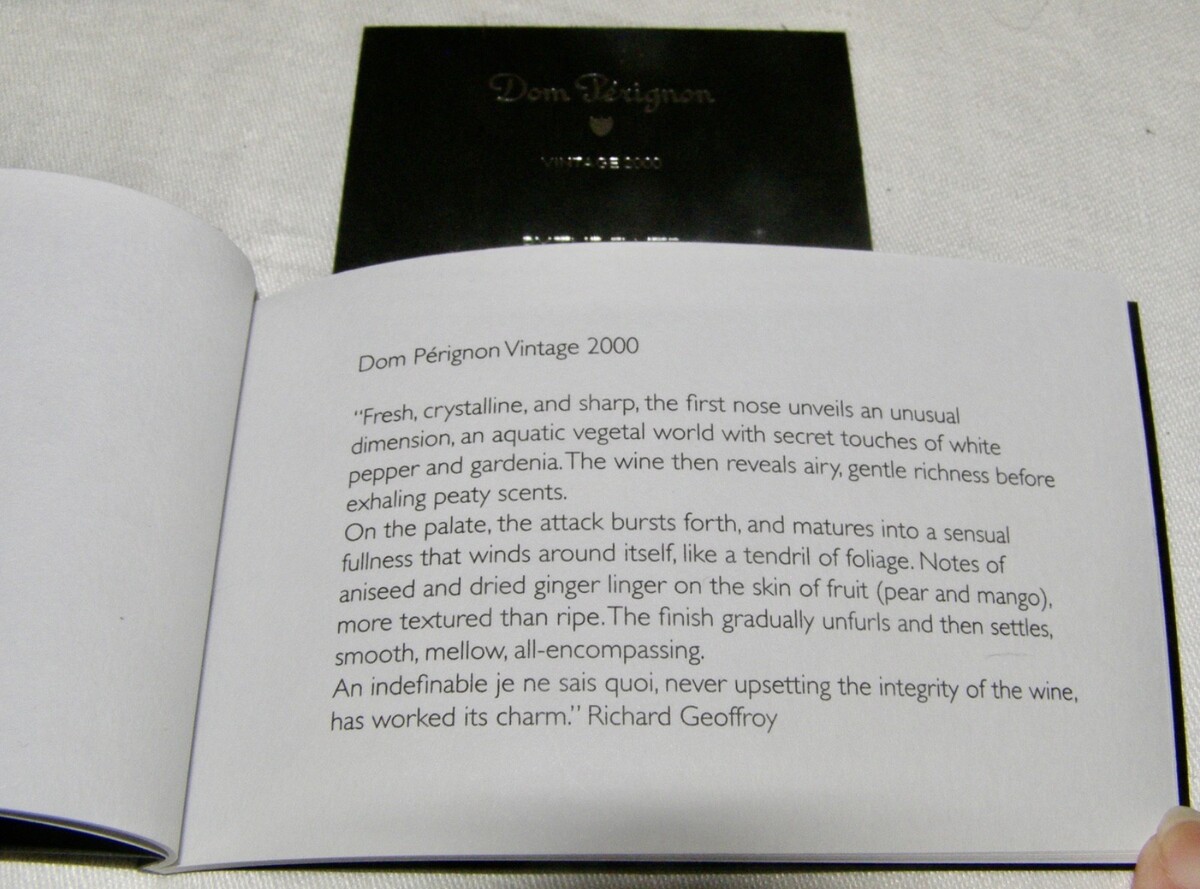 Dom Pérignon
VINTAGE 2000
Dom Pérignon Vintage 2000
“Fresh, crystalline, and sharp, the first nose unveils an unusual
dimension, an aquatic vegetal world with secret touches of white
pepper and gardenia. The wine then reveals airy, gentle richness before
exhaling peaty scents.
On the palate, the attack bursts forth, and matures into a sensual
fullness that winds around itself, like a tendril of foliage. Notes of
aniseed and dried ginger linger on the skin of fruit (pear and mango),
more textured than ripe. The finish gradually unfurls and then settles,
smooth, mellow, all-encompassing.
An indefinable je ne sais quoi, never upsetting the integrity of the wine,
has worked its charm.” Richard Geoffroy